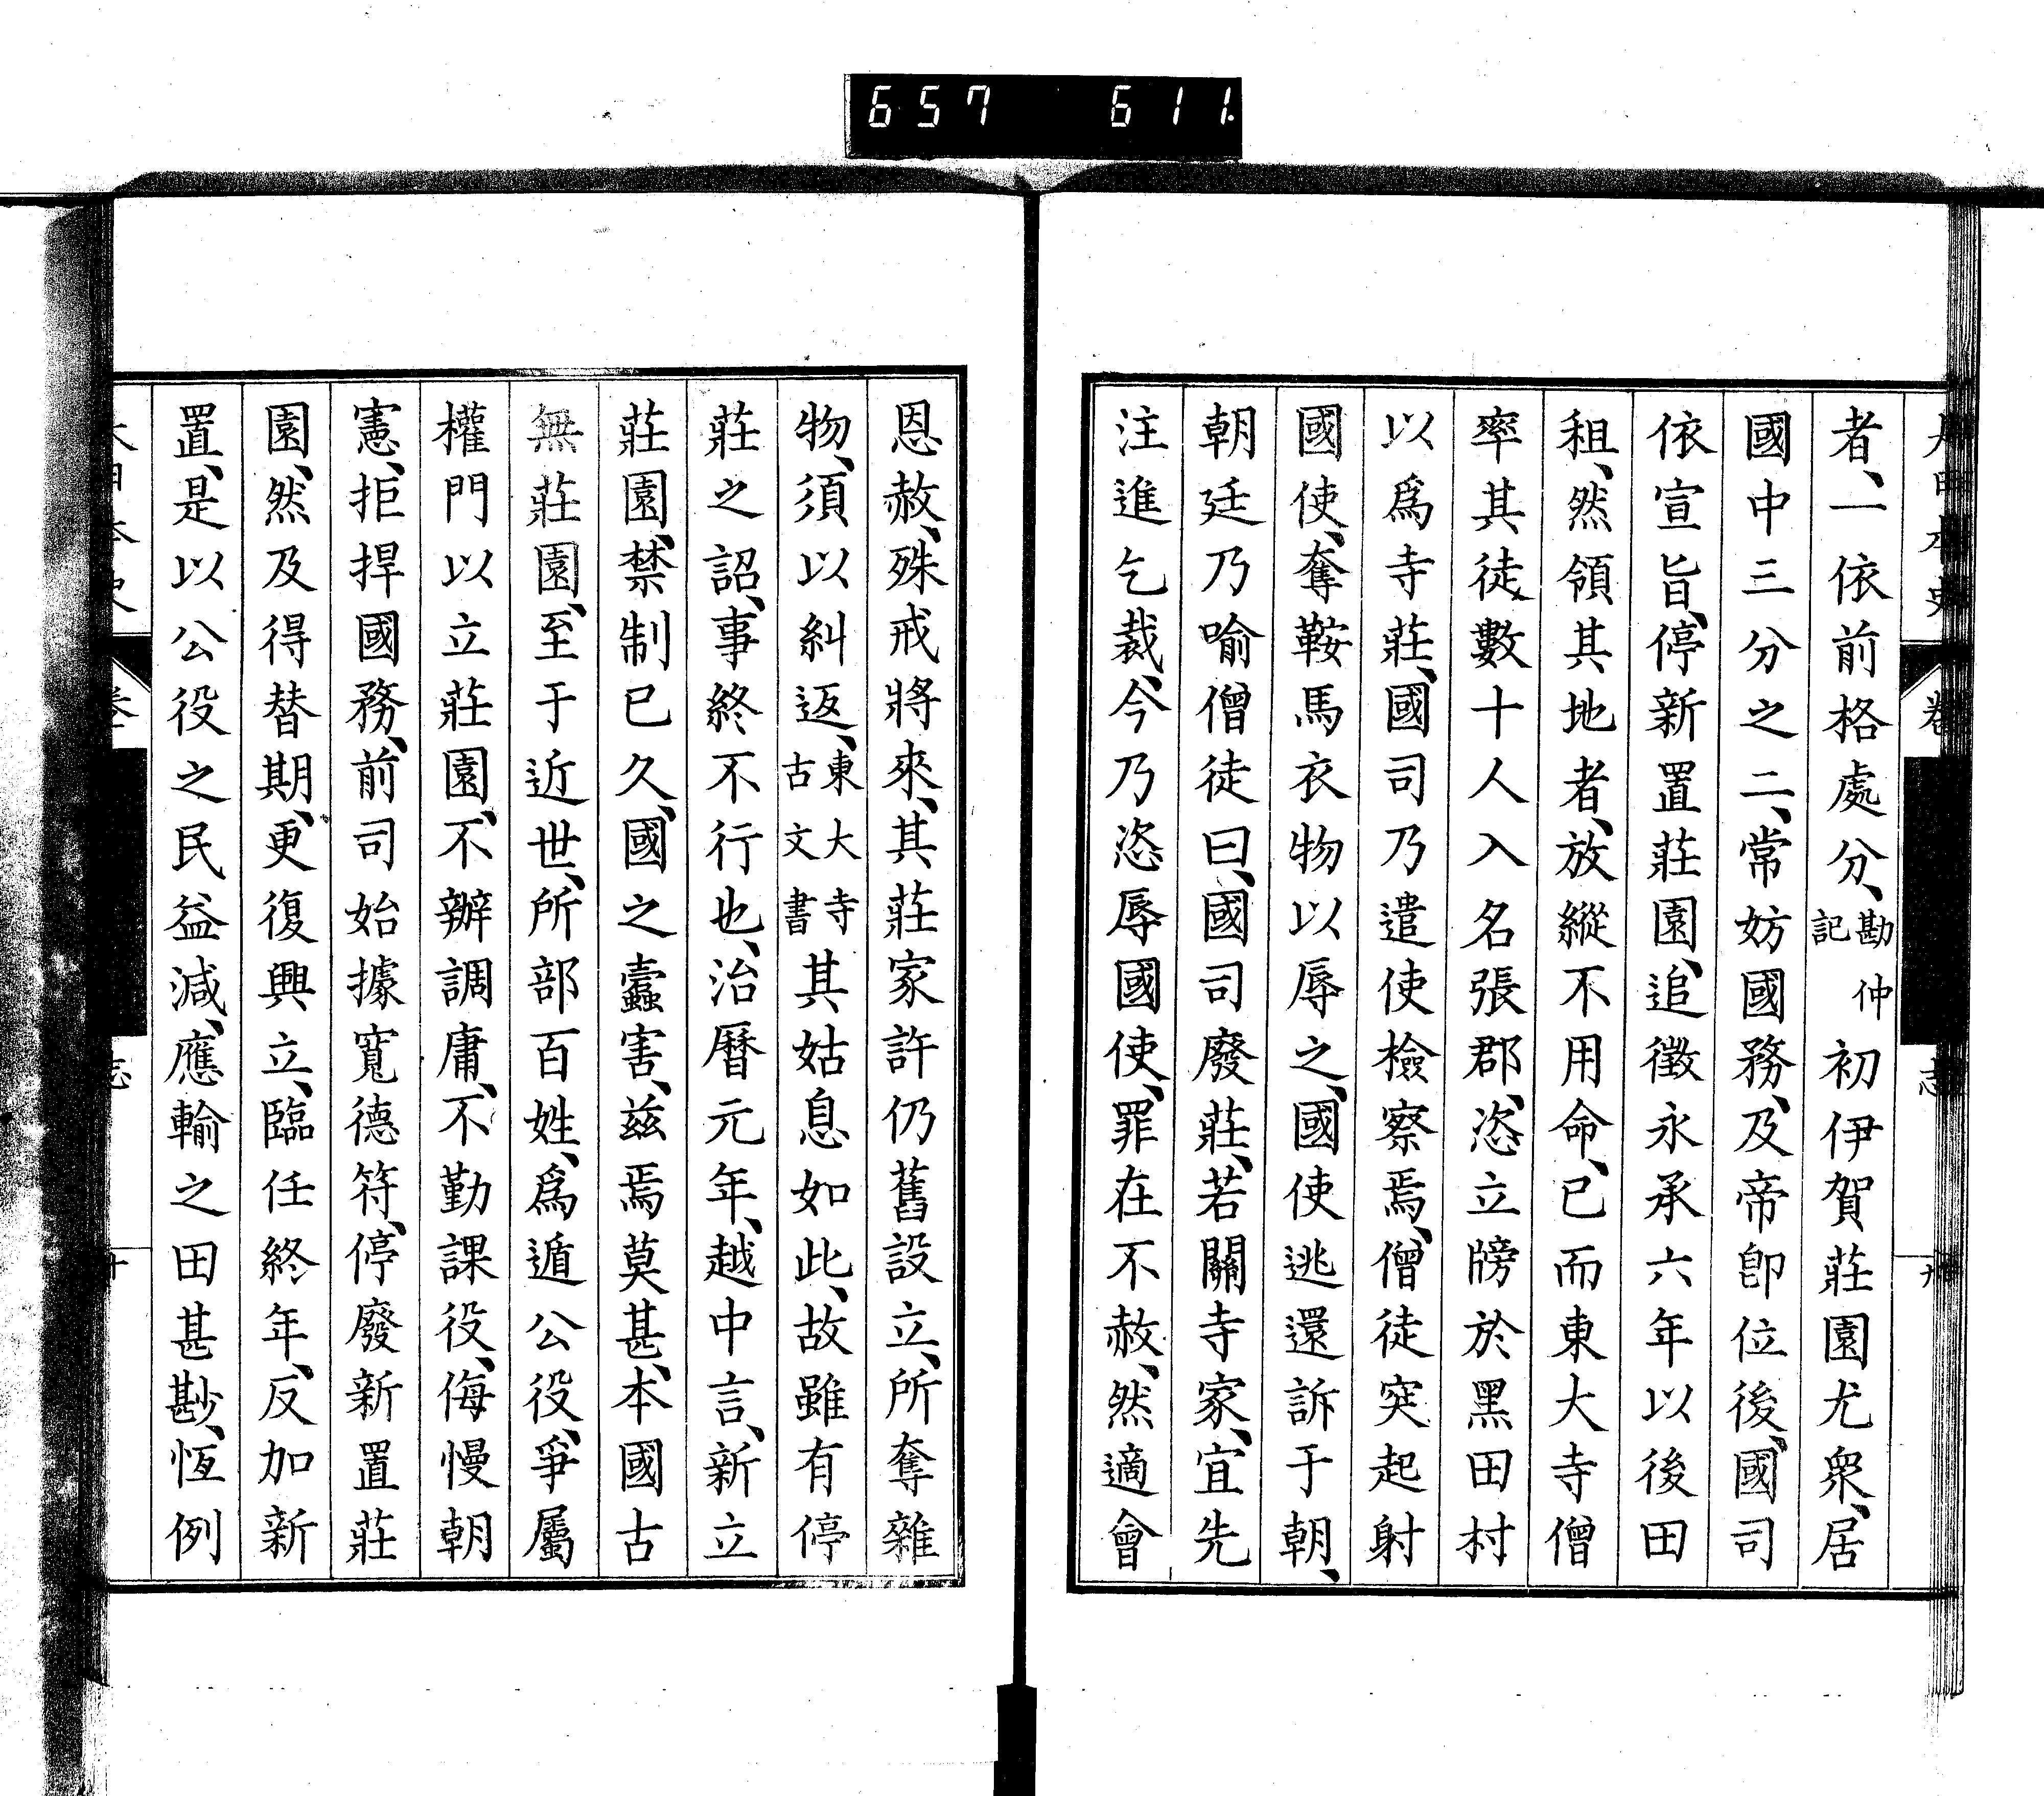 657 611.
者、一依前格處分、勘仲記初伊賀莊園尤衆、居
國中三分之二、常妨國務、及帝卽位後、國司
依宣旨、停新置莊園、追徵永承六年以後田
租、然領其地者、放縱不用命、已而東大寺僧
率其徒數十人入名張郡、恣立牓於黑田村
以爲寺莊、國司乃遣使檢察焉、僧徒突起射
國使、奪鞍馬衣物以辱之、國使逃還訴于朝、
朝廷乃喻僧徒曰、國司廢莊、若關寺家、宜先
注進乞裁、今乃恣辱國使、罪在不赦、然適會
恩赦、殊戒將來、其莊家許仍舊設立、所奪雜
物、須以糾返、東大寺古文書其姑息如此、故雖有停
莊之詔、事終不行也、治曆元年、越中言、新立
莊園、禁制已久、國之蠹害、茲焉莫甚、本國古
無莊園、至于近世、所部百姓、爲遁公役、爭屬
權門以立莊園、不辦調庸、不勤課役、侮慢朝
憲、拒捍國務、前司始據寬德符、停廢新置莊
園、然及得替期、更復興立、臨任終年、反加新
置、是以公役之民益減、應輸之田甚尠、恆例